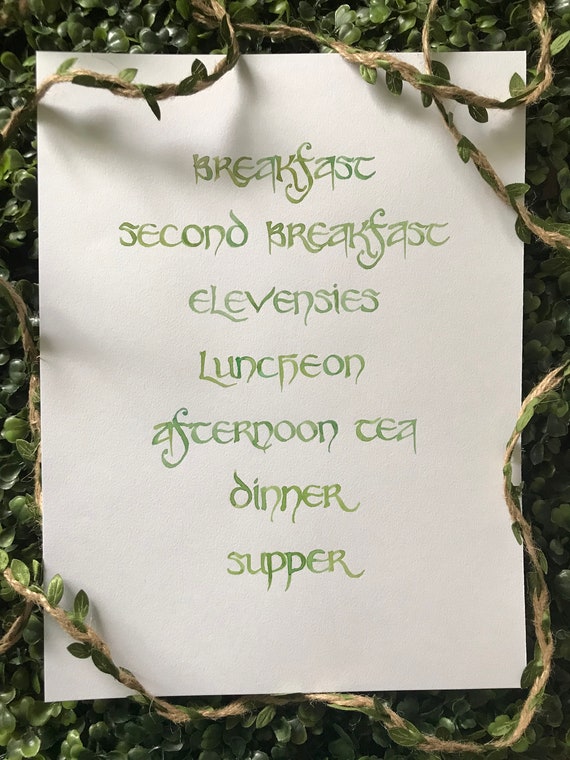 Breakfast
Second Breakfast
Elevensies
Luncheon
Afternoon Tea
Dinner
Supper